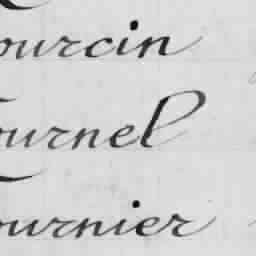 ourcin
ournel
ournier